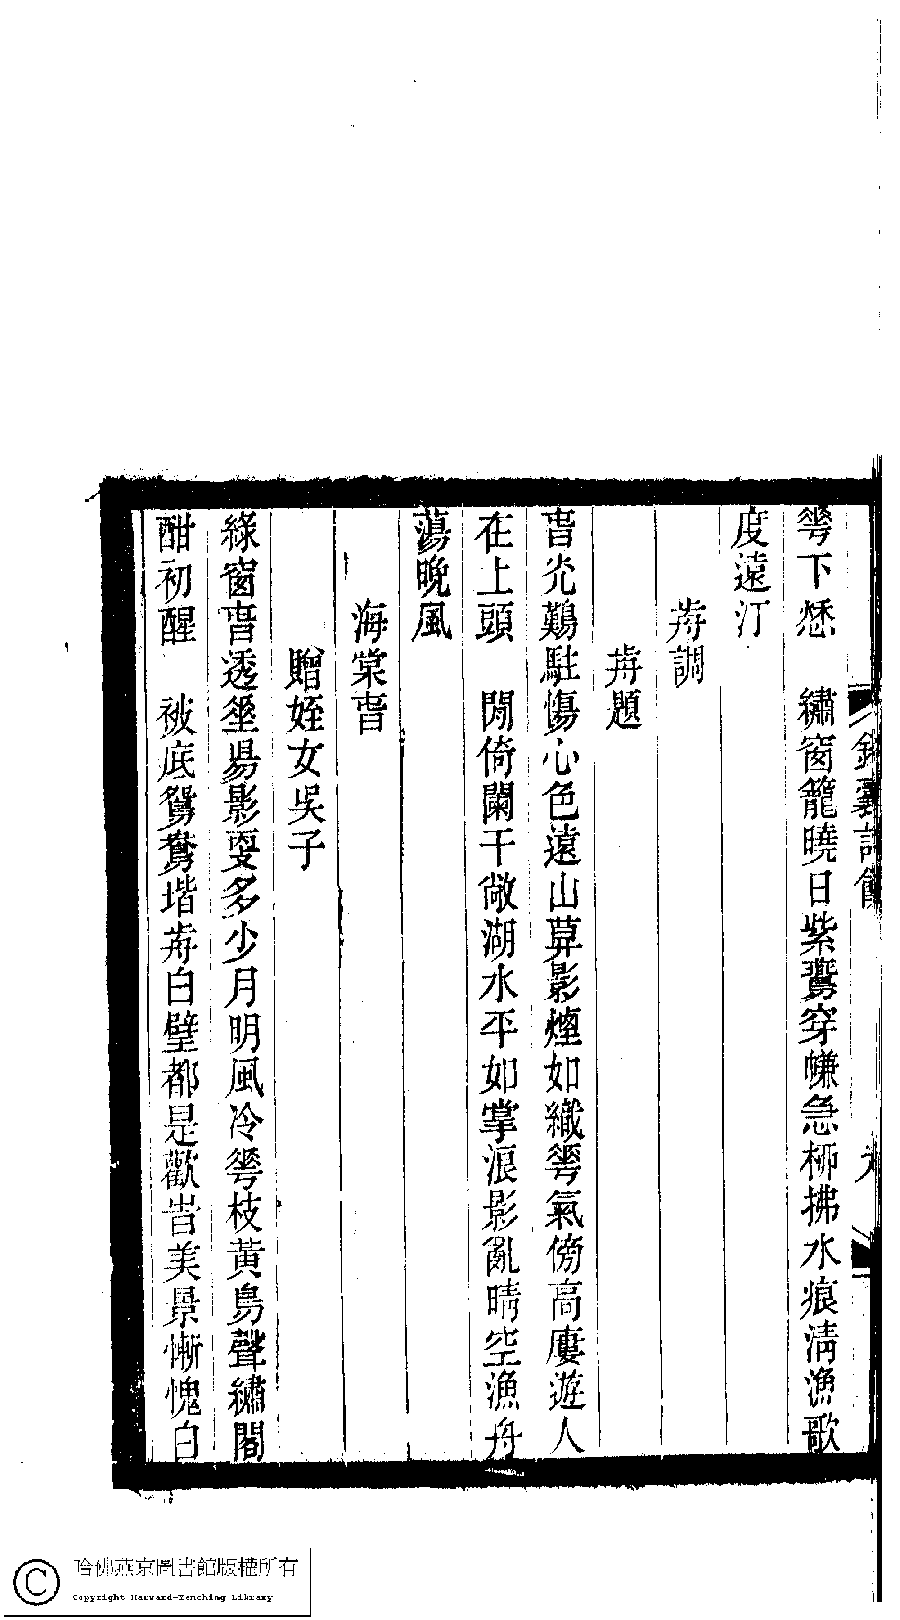 錦囊詩餘
蕚下愁　繡窗籠曉日紫鷰穿幙急桺拂水痕清漁歌
度遠汀
歬調
歬題
旾光鷬駐傷心色遠山萛影煙如織蕚氣傍高廔遊人
在上頭　閒倚闌干敞湖水平如掌浪影亂晴空漁舟
蕩晚風
海棠旾
贈姪女吳子
綠窗旾透㘴昜影耍多少月明風冷蕚枝黃鳥聲繡閣
酣初醒　被底鴛鴦堦歬白璧都是歡旹美景慚愧白
哈佛燕京圖書館版權所有
Copyright Harvard-Yenching Library